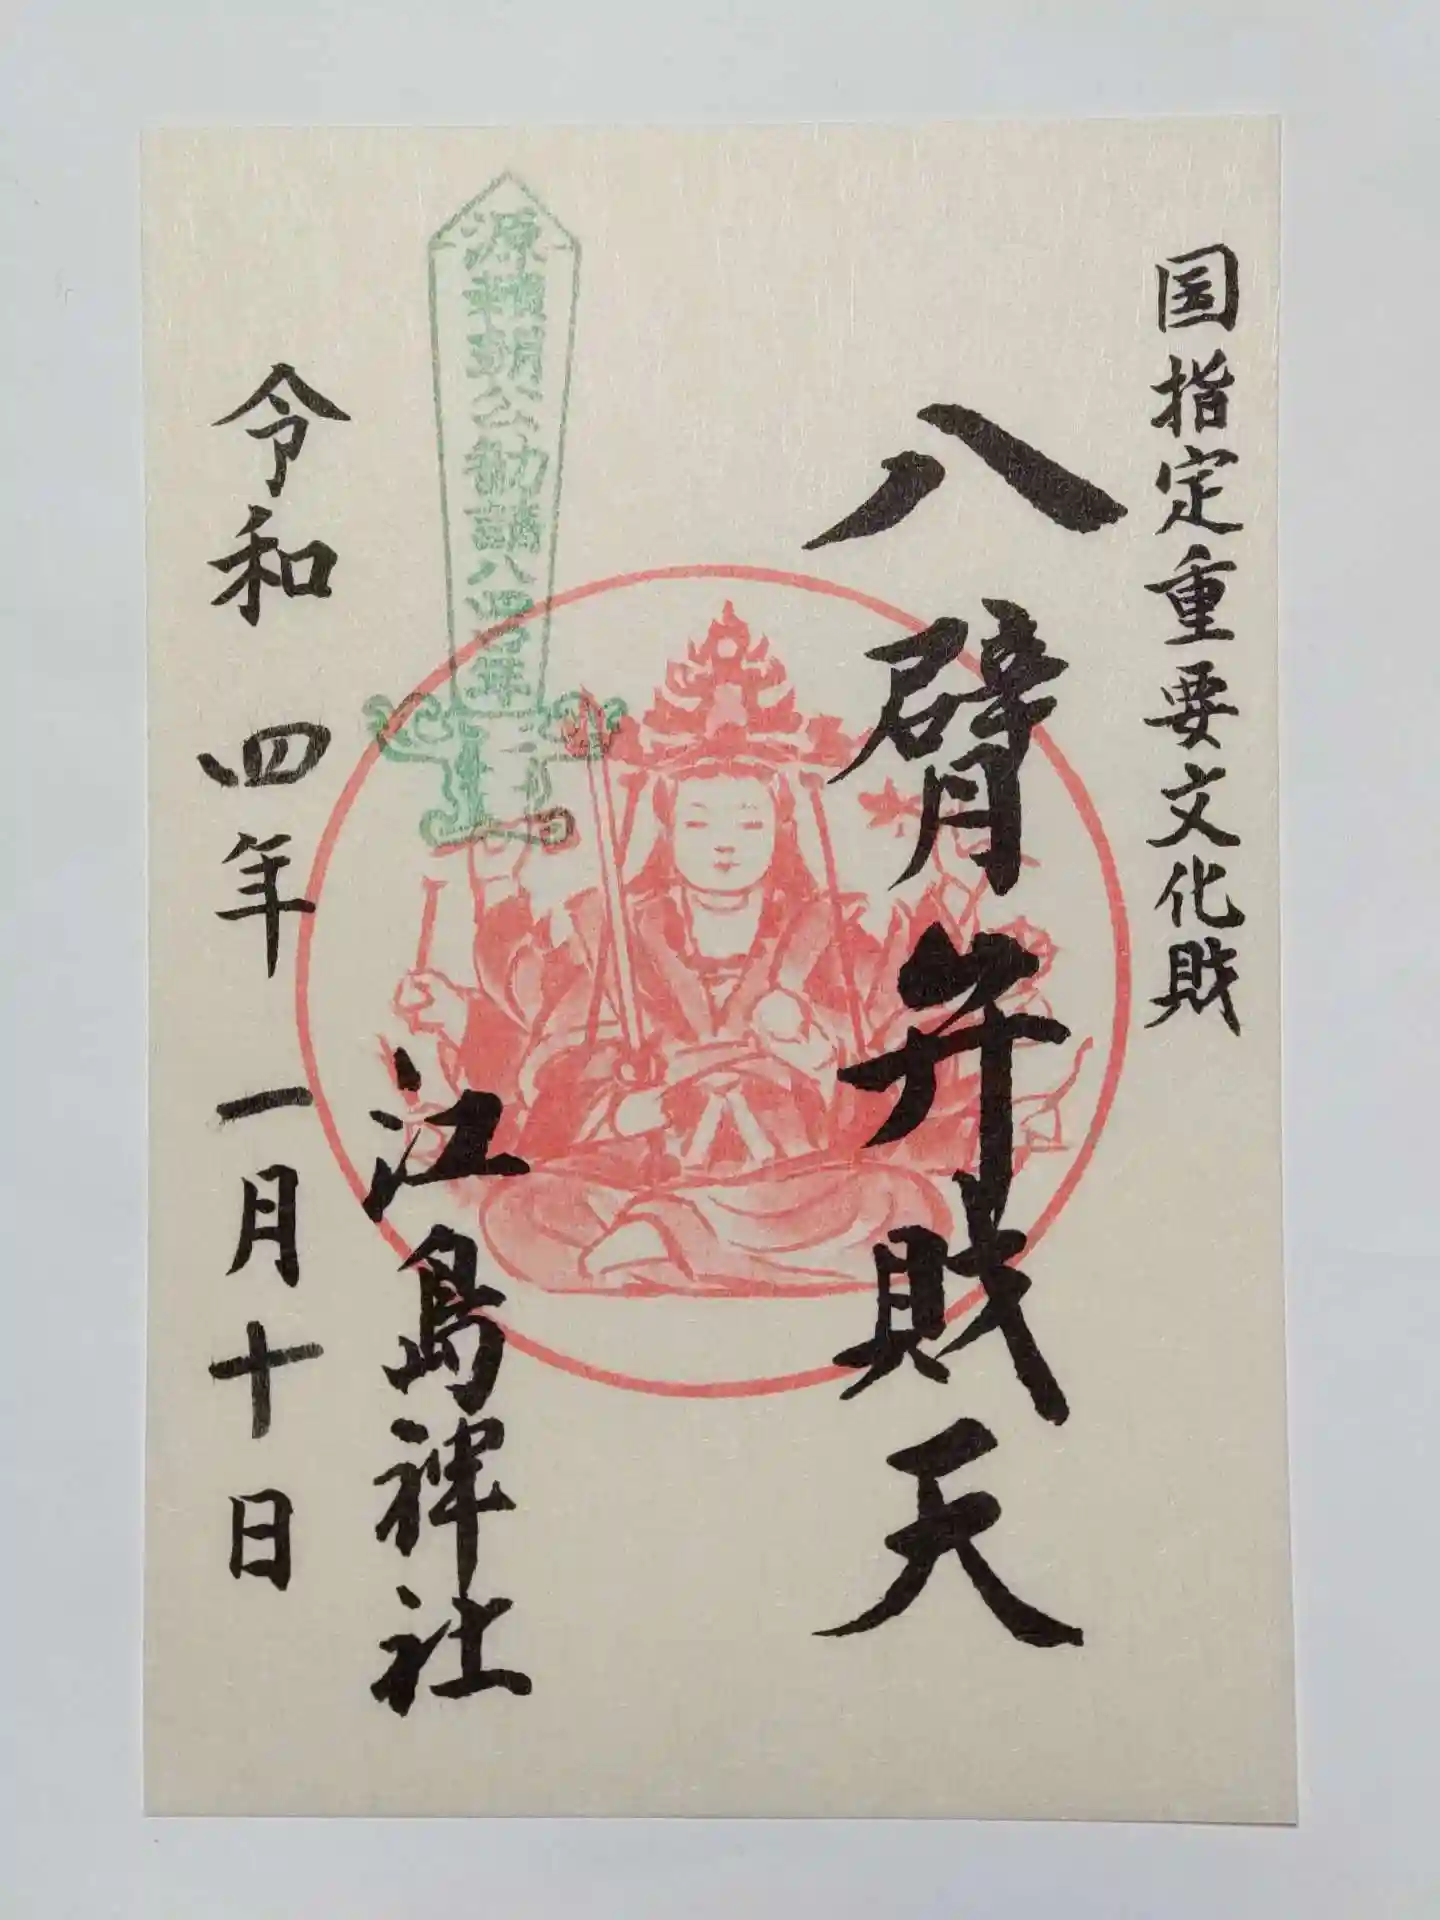 国指定重要文化財
八臂弁財天
源頼朝公勧請八四〇年
江島神社
令和四年一月十日